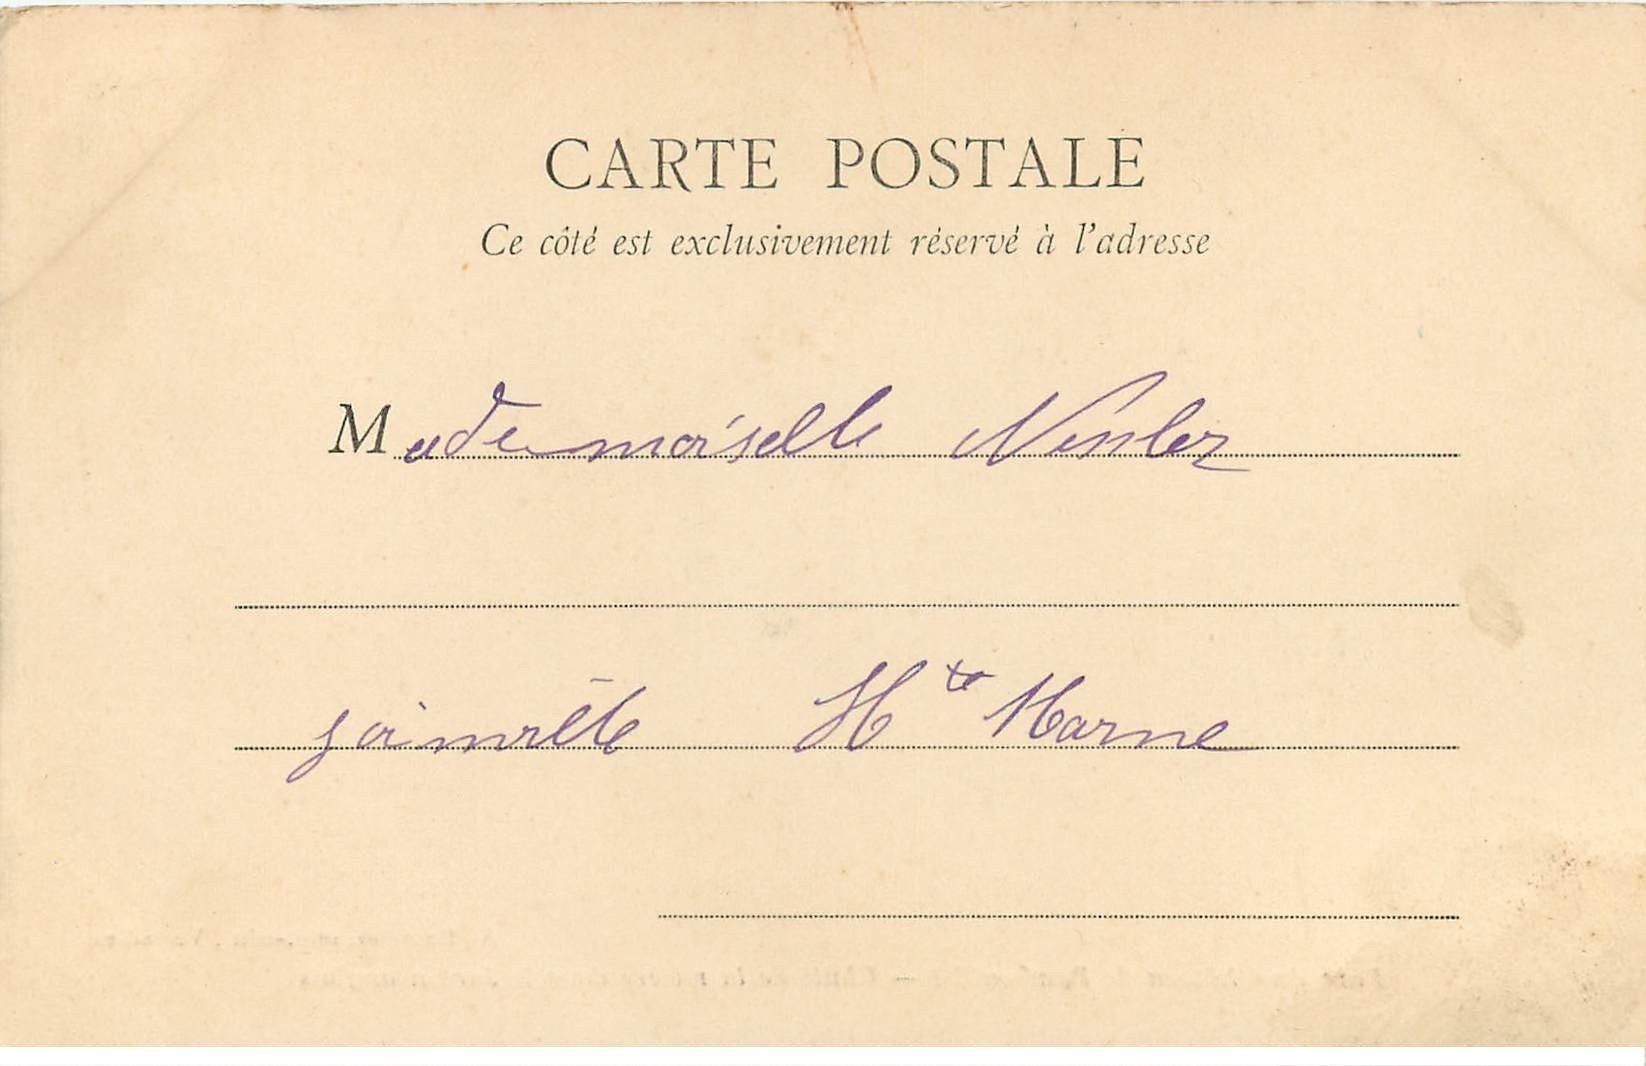 CARTE POSTALE
Ce côté est exclusivement réservé à l'adresse
Mademoiselle
Joinville Hte Marne